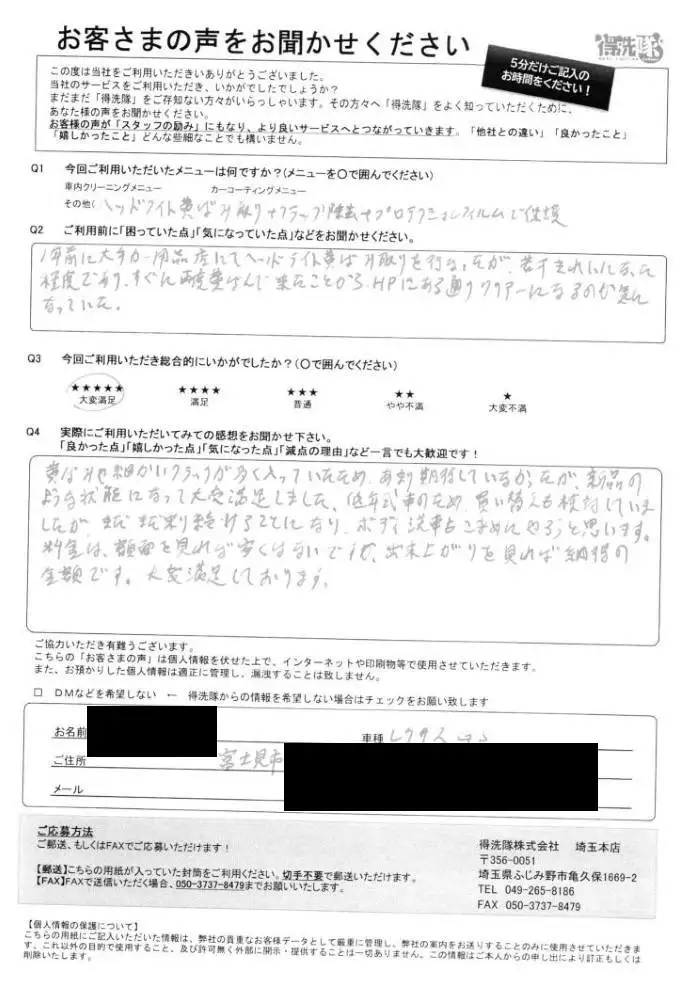 お客さまの声をお聞かせください
得洗隊
5分だけご記入の
お時間をください！
この度は当社をご利用いただきいありがとうございました。
当社のサービスをご利用いただき、いかがでしたでしょうか？
まだまだ「得洗隊」をご存知ない方々がいらっしゃいます。その方々へ「得洗隊」をよく知っていただくために、
あなた様の声をお聞かせください。
お客様の声が「スタッフの励み」にもなり、より良いサービスへとつながっていきます。「他社との違い」「良かったこと」
「嬉しかったこと」どんな些細なことでも構いません。
Q1 今回ご利用いただいたメニューは何ですか？(メニューを〇で囲んでください)
車内クリーニングメニュー カーコーティングメニュー
その他( ヘッドライト黄ばみ取り+クラック除去+プロテクションフィルムで保護
Q2 ご利用前に「困っていた点」「気になっていた点」などをお聞かせください。
1年前に大手カー用品店にてヘッドライト黄ばみ取りを行なったが、若干きれいになった
程度であり、すぐに再度黄ばんで来たことから、HPにある通りクリアーになるのか気に
なっていた。
Q3 今回ご利用いただき総合的にいかがでしたか？(〇で囲んでください)
★★★★★ ★★★★ ★★★ ★★ ★
大変満足 満足 普通 やや不満 大変不満
Q4 実際にご利用いただいてみての感想をお聞かせ下さい。
「良かった点」「嬉しかった点」「気になった点」「減点の理由」など一言でも大歓迎です！
黄ばみや細かいクラックが多く入っていたため、あまり期待していなかったが、新品の
ような状態になって大変満足しました。低年式車のため、買い替えも検討していま
したが、まだまだ乗り続けることになり、ボディ洗車もこまめにやろうと思います。
料金は、額面を見れば安くはないですが、出来上がりを見れば納得の
金額です。大変満足しております。
ご協力いただき有難うございます。
こちらの「お客さまの声」は個人情報を伏せた上で、インターネットや印刷物等で使用させていただきます。
また、お預かりした個人情報は適正に管理し、漏洩することは致しません。
□ DMなどを希望しない ← 得洗隊からの情報を希望しない場合はチェックをお願い致します
お名前 車種 レクサス
ご住所 富士見市
メール
ご応募方法
ご郵送、もしくはFAXでご応募いただけます！
【郵送】こちらの用紙が入っていた封筒をご利用ください。切手不要で郵送いただけます。
【FAX】FAXで送信いただく場合、050-3737-8479までお願いいたします。
得洗隊株式会社 埼玉本店
〒356-0051
埼玉県ふじみ野市亀久保1669-2
TEL 049-265-8186
FAX 050-3737-8479
【個人情報の保護について】
こちらの用紙にご記入いただいた情報は、弊社の貴重なお客様データとして厳重に管理し、弊社の案内をお送りすることのみに使用させていただきま
す。これ以外の目的で使用すること、及び許可無く外部に開示・提供することは一切ありません。この情報はご本人からの申し出により訂正もしくは
削除いたします。